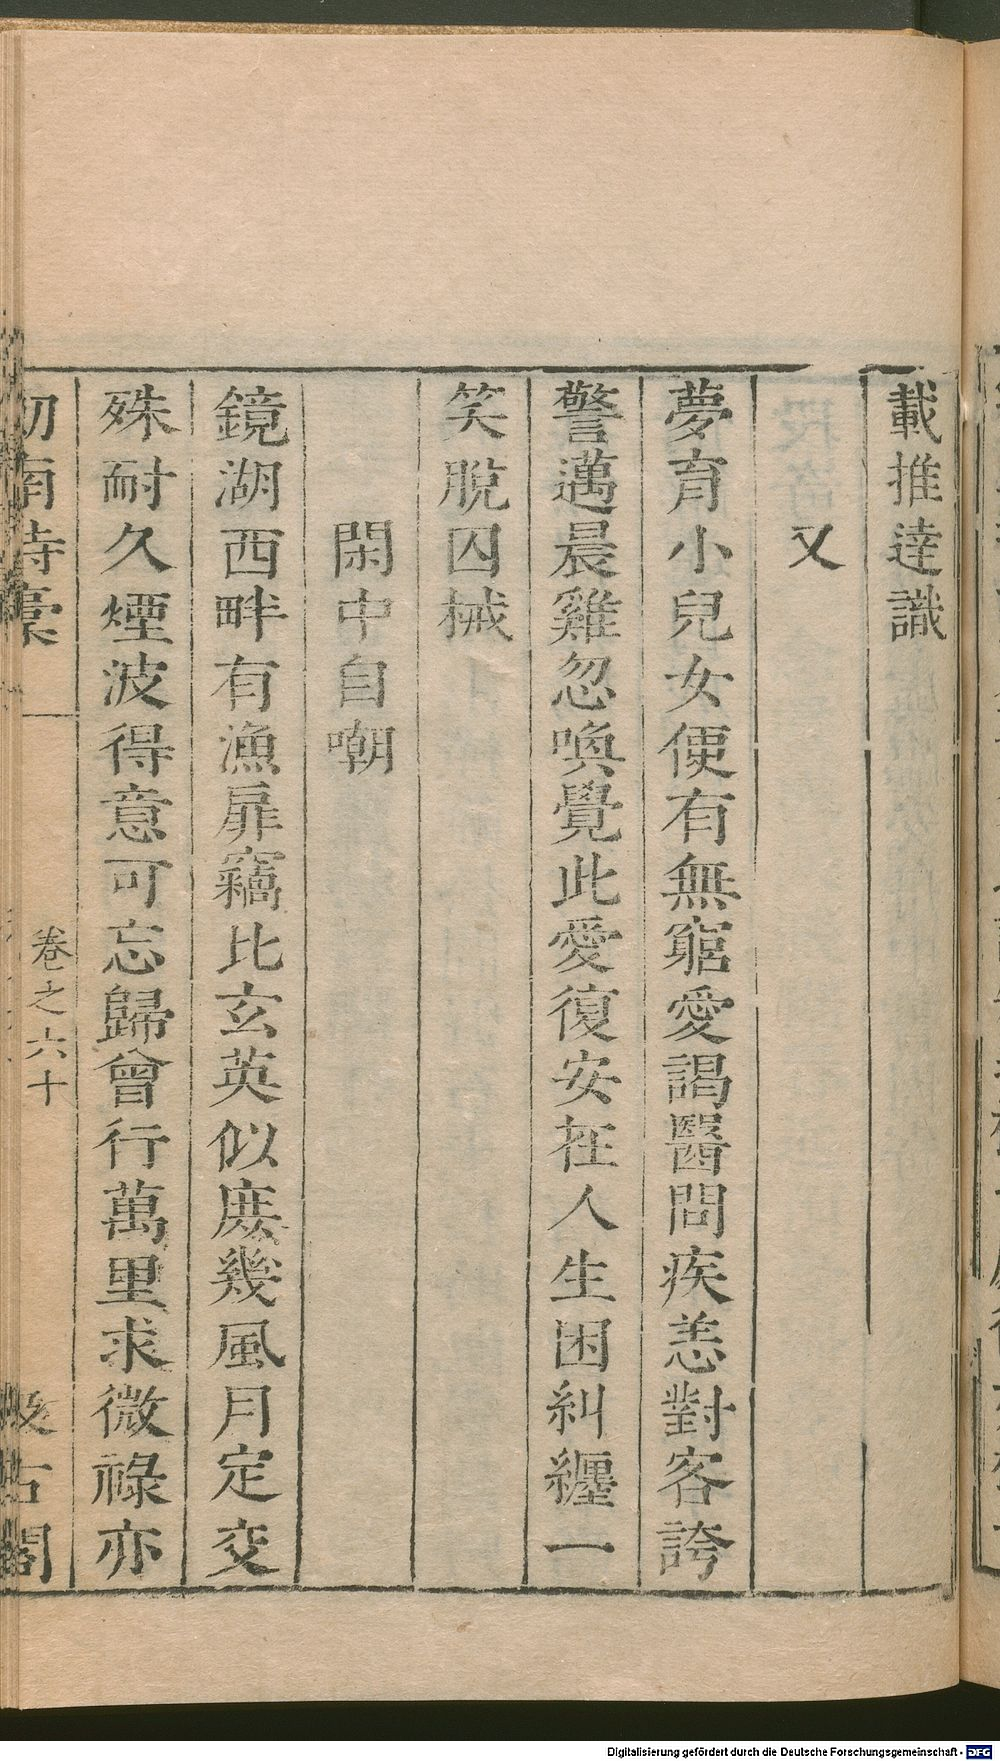 載推達識
又
夢育小兒女便有無窮愛謁醫問疾恙對客誇
警邁晨雞忽喚覺此愛復安在人生困糾纏一
笑脫囚械
閑中自嘲
鏡湖西畔有漁扉竊比玄英似庶幾風月定交
殊耐久煙波得意可忘歸曾行萬里求微祿亦
劒南詩稾
卷之六十
汲古閣
Digitalisierung gefördert durch die Deutsche Forschungsgemeinschaft - DFG